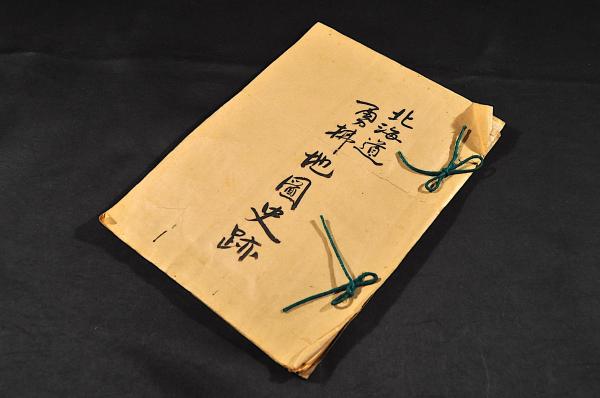 北海道
勇拂
地圖史跡